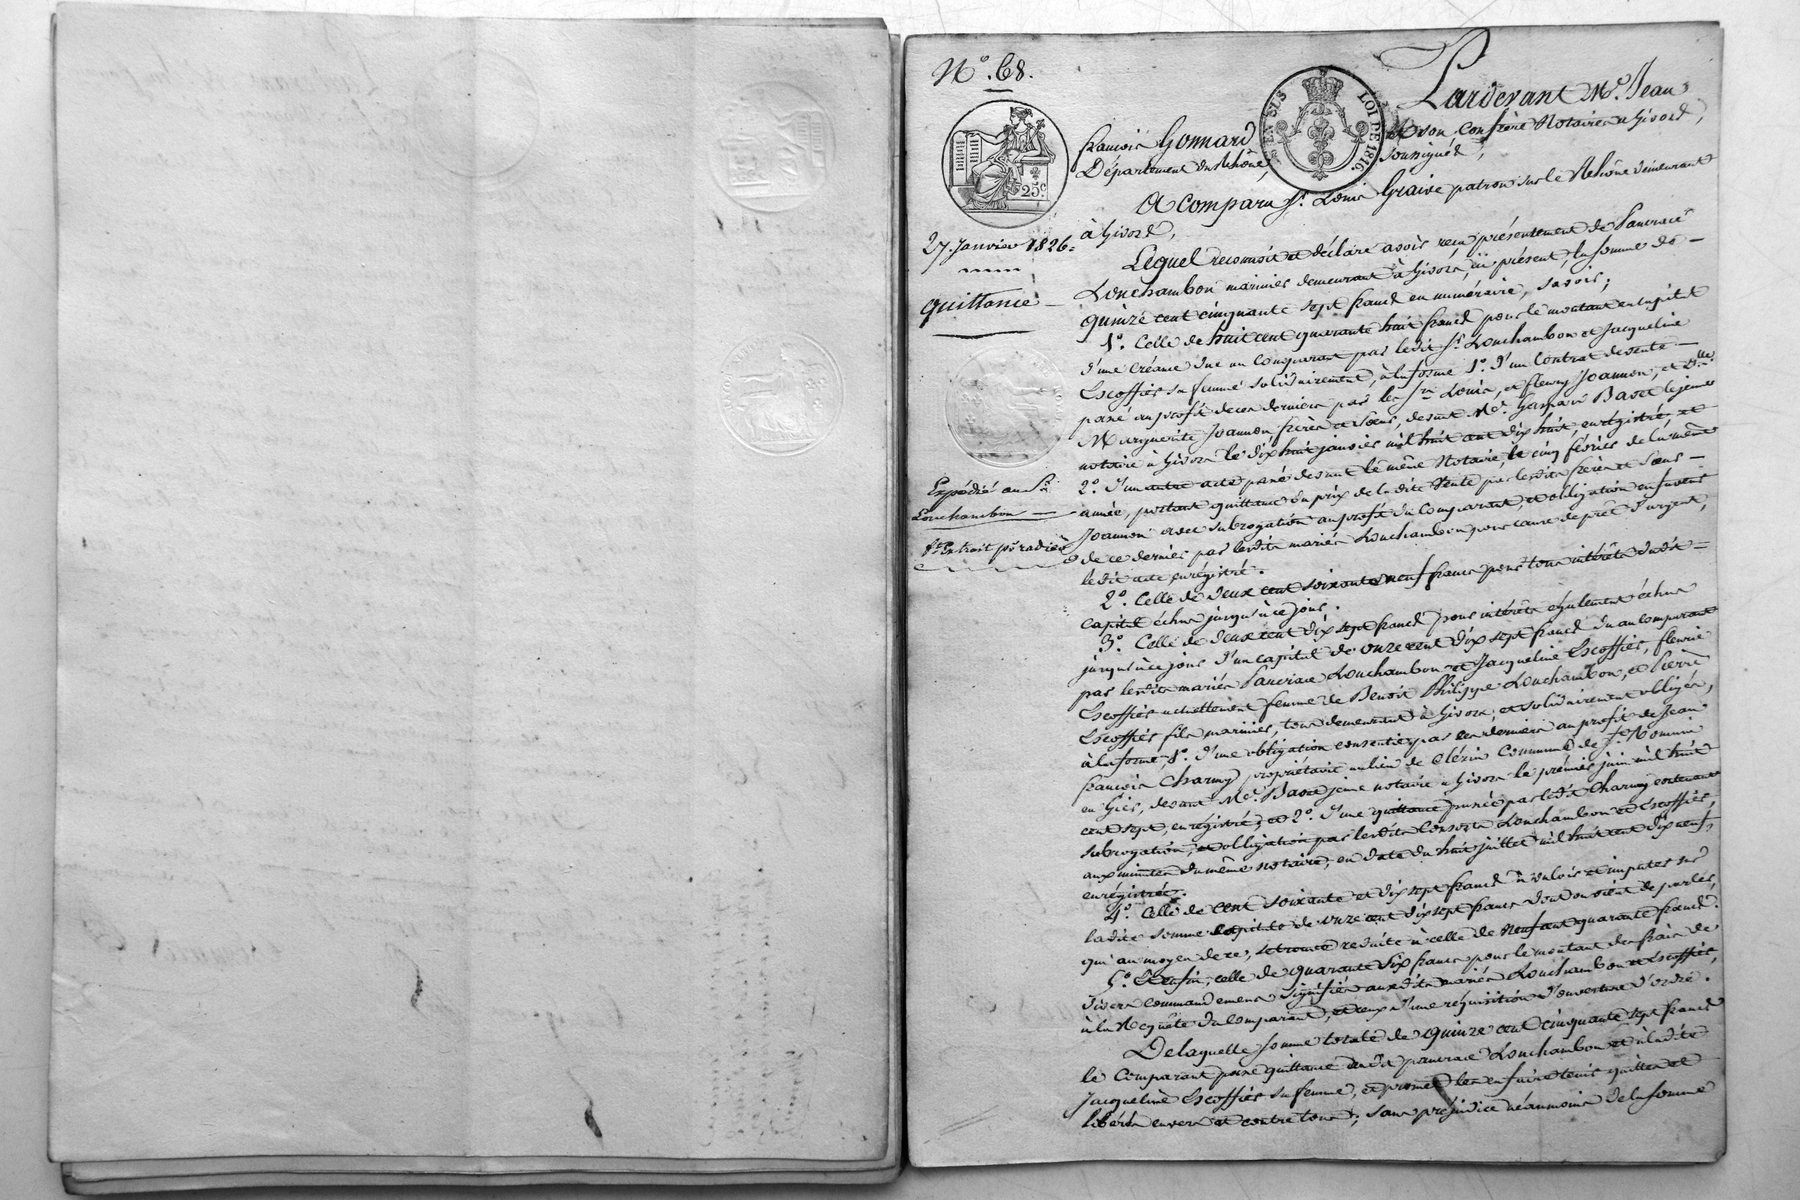 N.° 68.
Pardevant M.e Jean
françois Gonnard & son Confrère Notaires à Givors,
Département du Rhône, soussignés,
25.c
EN SUS
LOI DE 1816.
A comparu Sr. Louis Graive patron sur le Rhône demeurant
à Givors,
27. Janvier 1826.
Lequel reconnoit et déclare avoir reçu présentement de Pancrace
Louchambon marinier demeurant à Givors, ici présent, la somme de
quittance
quinze cent cinquante sept francs en numéraire, savoir;
1°. Celle de huit cent quarante huit francs pour le montant en capital
d'une créance due au Comparant par ledit Sr. Louchambon et Jacqueline
Escoffier sa femme solidairement, à la forme 1°. d'un Contrat de vente
passé au profit de ces derniers par les Srs. Louis, et fleury Joannon, et Dlle.
Marguerite Joannon frères et sœur, devant Me. Gaspard Basset le jeune
notaire à Givors le dix huit janvier mil huit cent dix huit, enregistré, et
2°. d'un autre acte passé devant le même Notaire, le cinq février de la même
année, portant quittance du prix de la dite Vente par lesdits frères et sœur
Joannon avec subrogation au profit du Comparant, et obligation en faveur
de ce dernier par lesdits mariés Louchambon pour cause de prêt d'argent,
ledit acte enrégistré.
Expédié au Sr.
Louchambon
1er. Extrait pr. radiation
2°. Celle de deux cent soixante neuf francs pour tous intérêts dudit
capital échus jusqu'à ce jour.
3°. Celle de deux cent dix sept francs pour intérêts également échus
jusqu'à ce jour d'un capital de onze cent dix sept francs dû au Comparant
par lesdits mariés Pancrace Louchambon et Jacqueline Escoffier, fleurie
Escoffier actuellement femme de Benoit Philippe Louchambon, et Pierre
Escoffier fils marinier, tous demeurant à Givors, et solidairement obligés,
à la forme 1°. d'une obligation consentie par ces derniers au profit de Jean
françois Charmy propriétaire au lieu de Clérin Commune de St. Romain
en Gier, devant Me. Basset jeune notaire à Givors le premier juin mil huit
cent sept, enregistrée; et 2°. d'une quittance passée par ledit Charmy contenant
subrogation, et obligation par lesdits consorts Louchambon et Escoffier,
aux minutes du même notaire, en date du huit juillet mil huit cent dix neuf,
enrégistrée.
4°. Celle de cent soixante et dix sept francs à valoir et imputer sur
ladite somme capitale de onze cent dix sept francs dont on vient de parler,
qui au moyen de ce, se trouve réduite à celle de neuf cent quarante francs.
5°. Et enfin, celle de quarante six francs pour le montant des frais de
divers commandemens signifiés auxdits mariés Louchambon et Escoffier,
à la Requête du Comparant, et ceux d'une réquisition d'ouverture d'ordre.
De laquelle somme totale de quinze cent cinquante sept francs
le Comparant passe quittance audit pancrace Louchambon et à ladite
Jacqueline Escoffier sa femme, et promet les en faire tenir quittes et
libérés envers et contre tous; sans préjudice néanmoins de la somme